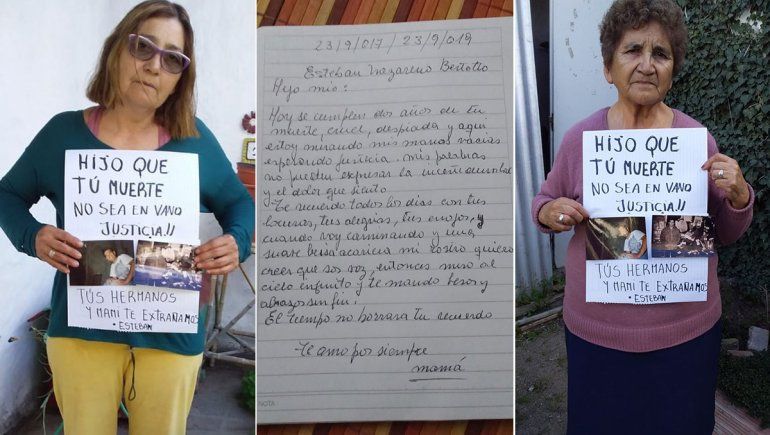 HIJO QUE
TÚ MUERTE
NO SEA EN VANO
JUSTICIA!!
TÚS HERMANOS
Y MAMI TE EXTRAÑAMOS
• ESTEBAN
23/9/017 / 23/9/019
Esteban Nazareno Bertotto
Hijo mio:
Hoy se cumplen dos años de tu
muerte, cruel, despiada y aqui
estoy mirando mis manos vacias
esperando justicia. mis palabras
no pueden expresar la incertidumbre
y el dolor que siento
Te recuerdo todos los dias con tus
locuras, tus alegrias, tus enojos, y
cuando voy caminando y una
suave brisa acaricia mi rostro quiero
creer que sos vos, entonces miro al
cielo infinito y te mando besos y
abrazos sin fin.
El tiempo no borrara tu recuerdo
te amo por siempre
mamá
NOTA
HIJO QUE
TÚ MUERTE
NO SEA EN VANO
JUSTICIA!!
TÚS HERMANOS
Y MAMI TE EXTRAÑAMOS
• ESTEBAN